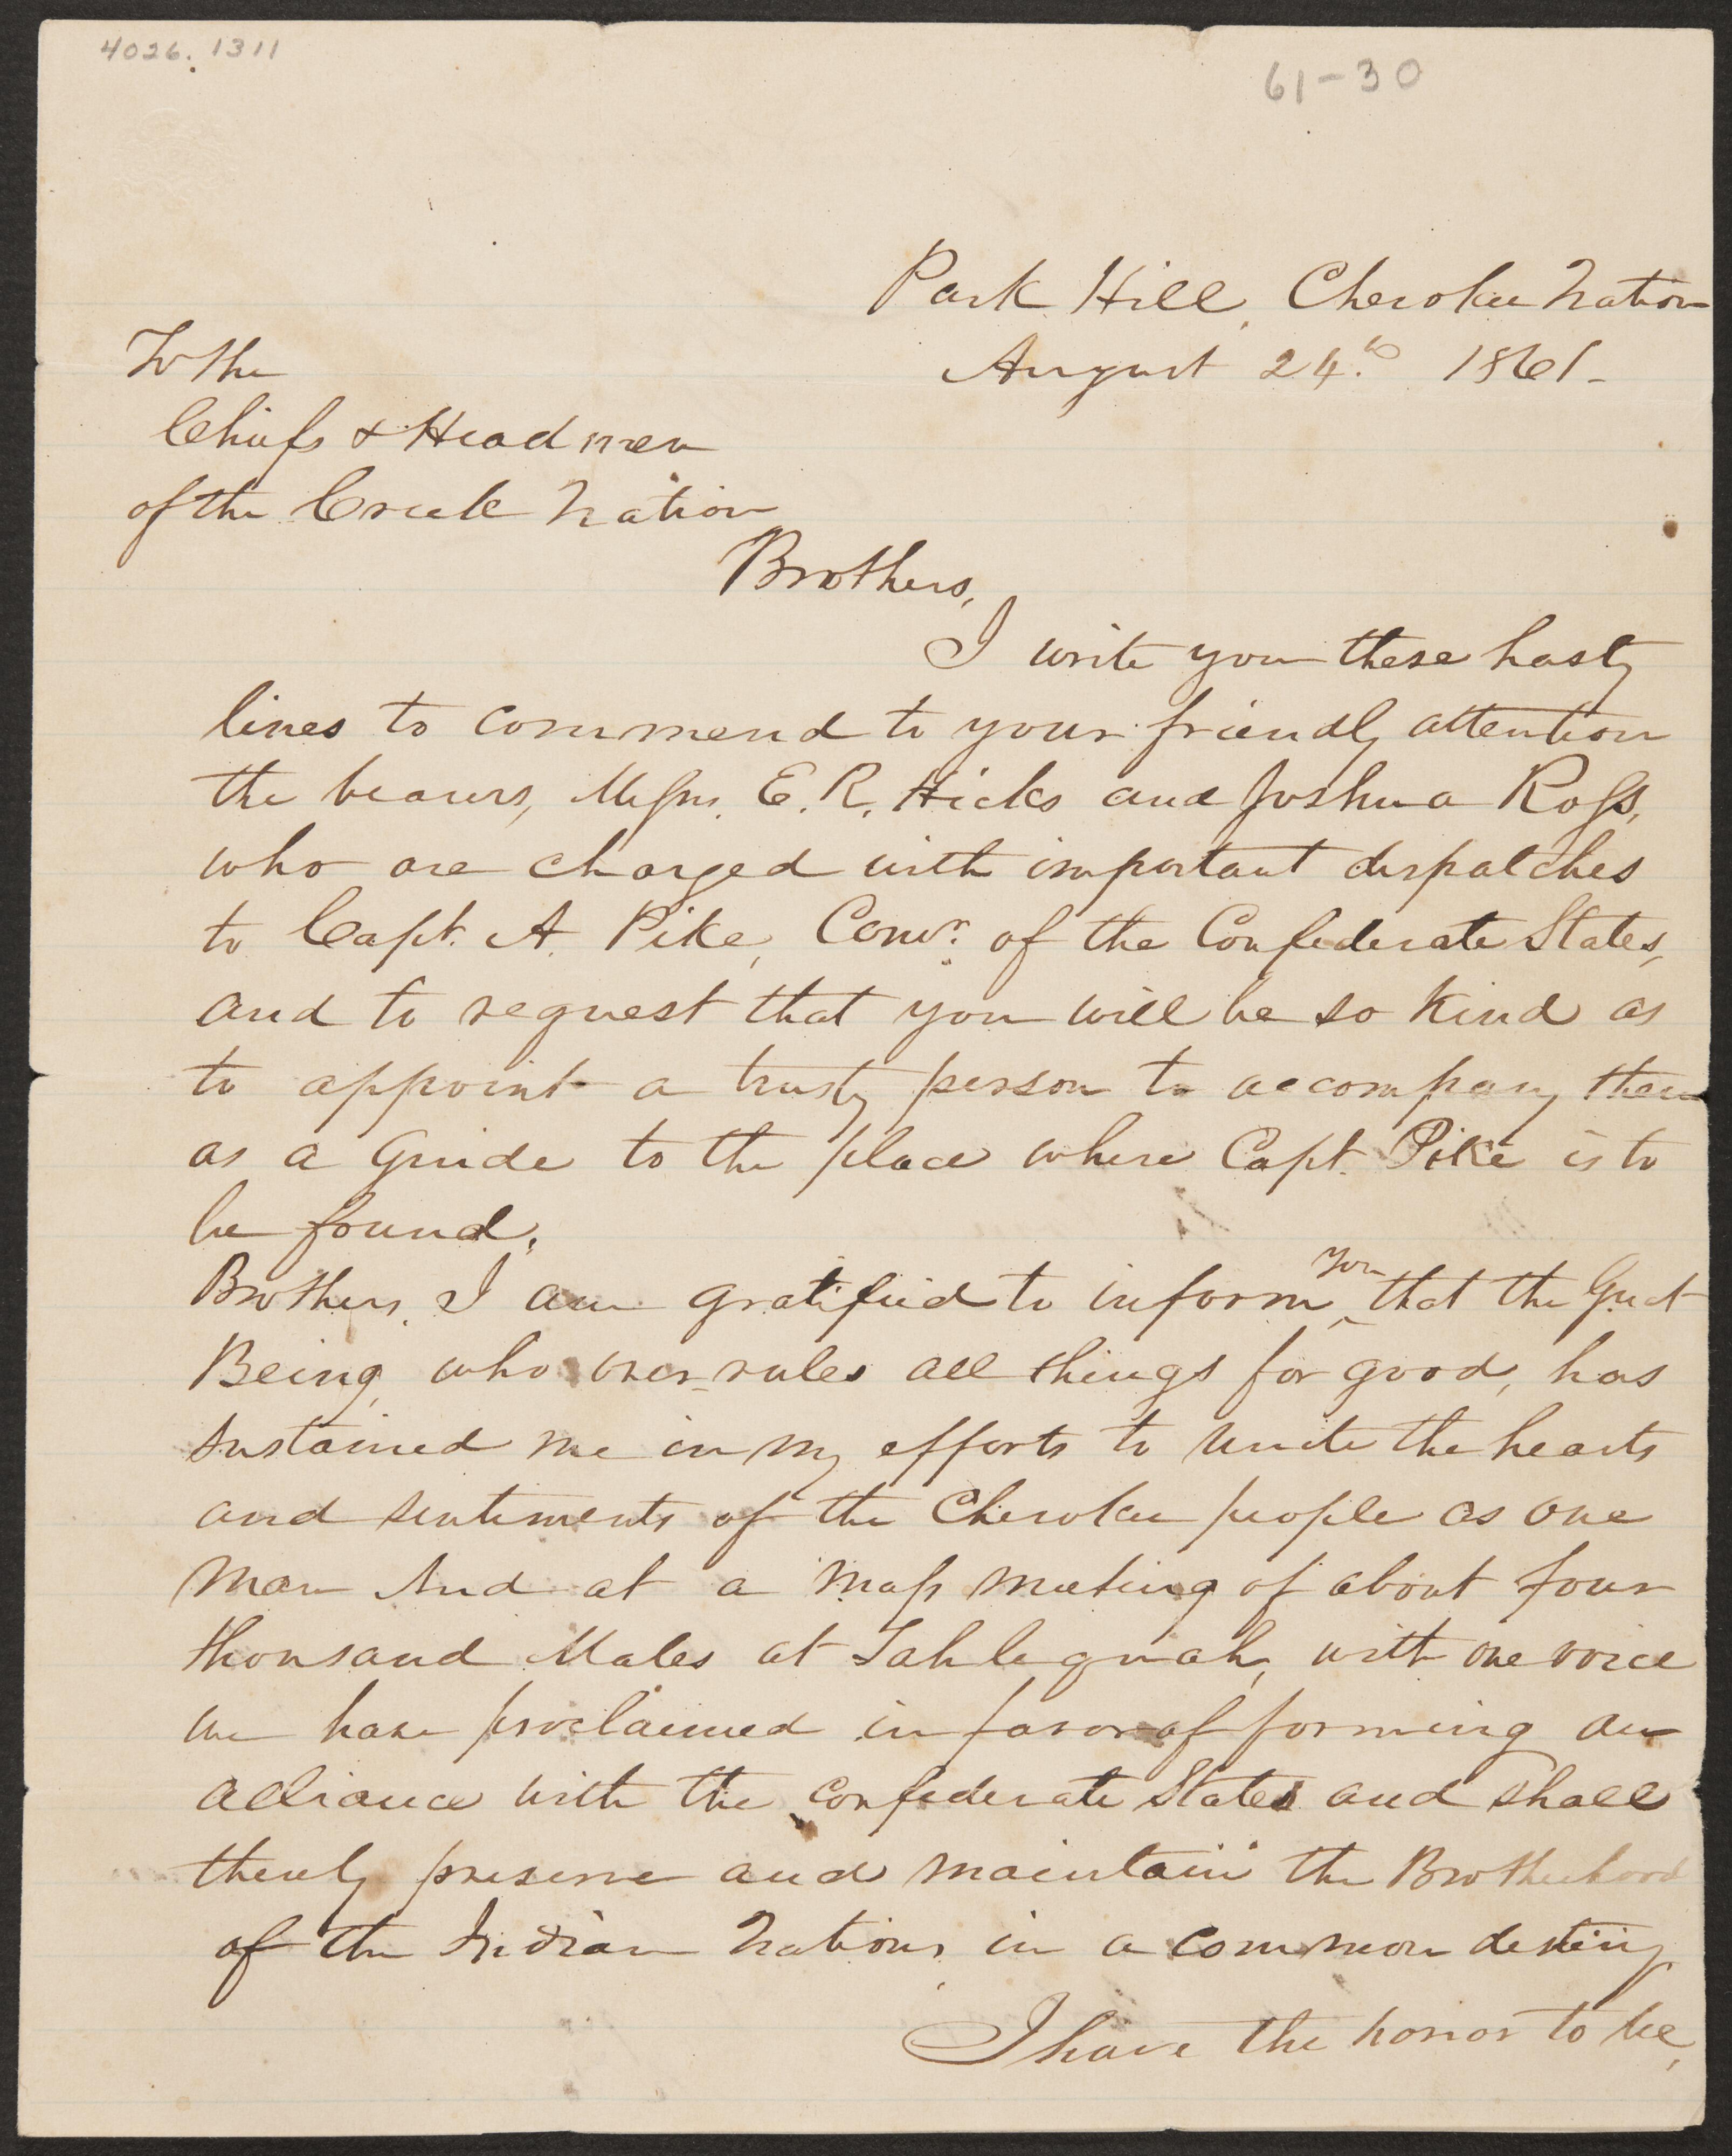 4026.1311
61-30
Park Hill, Cherokee Nation
August 24th. 1861-
To the
Chiefs & Headmen
of the Creek Nation
Brothers,
I write you these hasty
lines to commend to your friendly attention
the bearers, Messrs. E. R. Hicks and Joshua Ross,
who are charged with important dispatches
to Capt. A. Pike, Comr. of the Confederate States,
and to request that you will be so kind as
to appoint a trusty person to accompany them
as a Guide to the place where Capt. Pike is to
be found.
Brothers, I am gratified to inform you that the Great
Being, who over-rules all things for good, has
sustained me in my efforts to unite the hearts
and sentiments of the Cherokee people as one
man And at a mass meeting of about four
thousand Males at Tahlequah, with one voice
we have proclaimed in favor of forming an
alliance with the Confederate States and shall
thereby preserve and maintain the Brotherhood
of the Indian Nations in a common destiny
I have the honor to be,